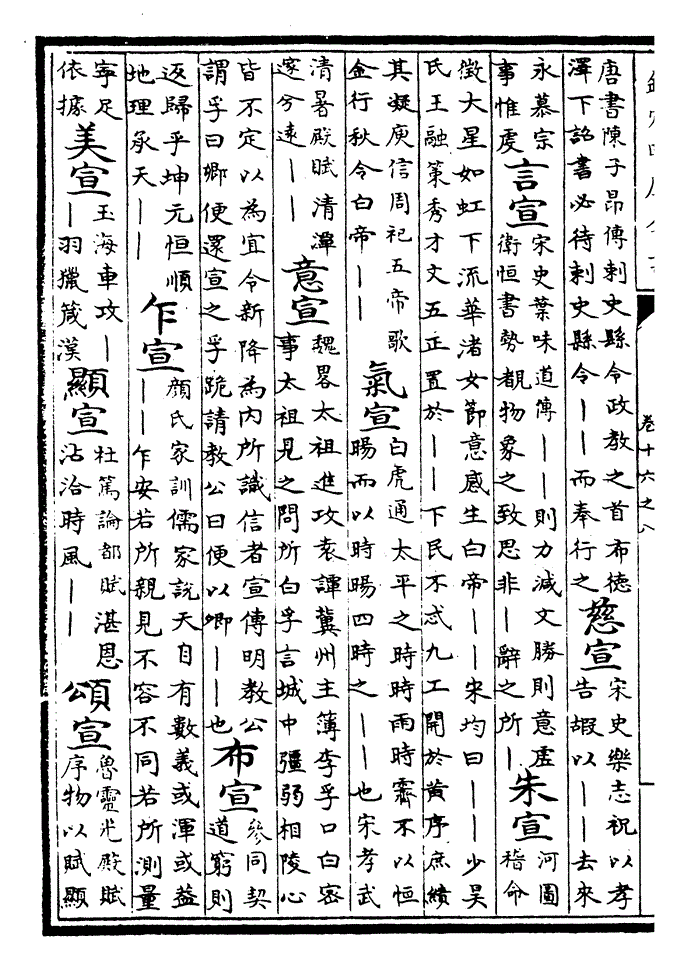 卷十六之八
唐書陳子昂傳刺史縣令政教之首布徳
澤下詔書必待刺史縣令——而奉行之
慈宣
宋史樂志祝以孝
告嘏以——去來
永慕宗
事惟虔
言宣
宋史葉味道傳——則力減文勝則意虛
衛恒書勢覩物象之致思非—辭之所—
朱宣
河圖
稽命
徵大星如虹下流華渚女節意感生白帝——宋均曰——少昊
氏王融策秀才文五正置於——下民不忒九工開於黄序庶績
其凝庾信周祀五帝歌
金行秋令白帝——
氣宣
白虎通太平之時時雨時霽不以恒
暘而以時暘四時之——也宋孝武
清暑殿賦清潭
邃兮遠——
意宣
魏畧太祖進攻袁譚冀州主簿李孚口白宻
事太祖見之問所白孚言城中彊弱相陵心
皆不定以為宜令新降為内所識信者宣傳明教公
謂孚曰卿便還宣之孚跪請教公曰便以卿——也
布宣
參同契
道窮則
返歸乎坤元恒順
地理承天——
乍宣
顔氏家訓儒家說天自有數義或渾或葢
——乍安若所親見不容不同若所測量
寕足
依據
美宣
玉海車攻—
—羽獵箴漢
顯宣
杜篤論都賦湛恩
沾洽時風——
頌宣
魯靈光殿賦
序物以賦顯